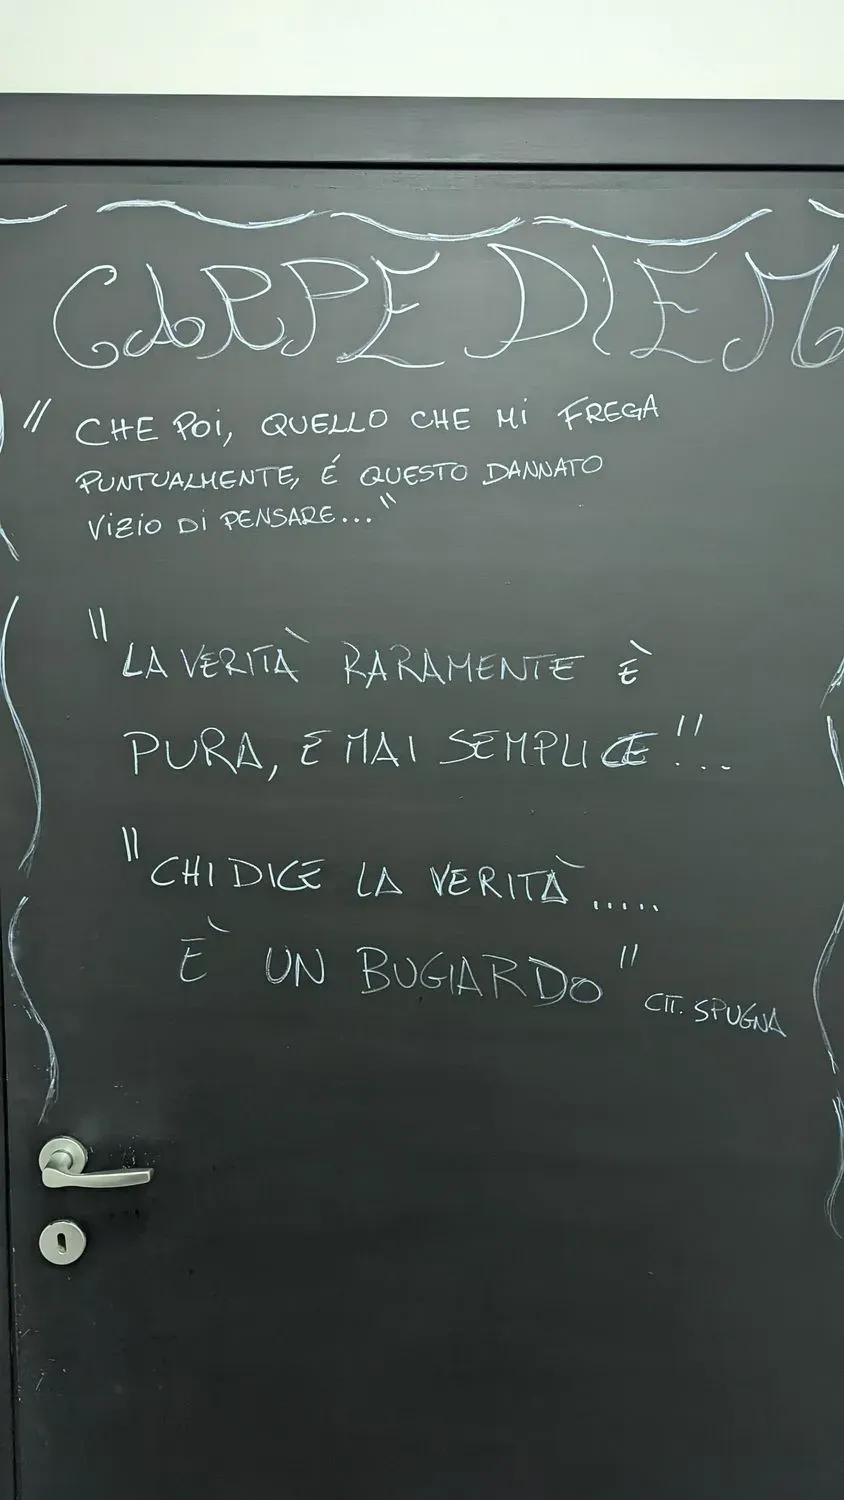 CARPE DIEM
" CHE POI, QUELLO CHE MI FREGA
PUNTUALMENTE, É QUESTO DANNATO
VIZIO DI PENSARE..."
"LA VERITÀ RARAMENTE È
PURA, E MAI SEMPLICE"...
"CHI DICE LA VERITÀ.....
È UN BUGIARDO" CIT. SPUGNA